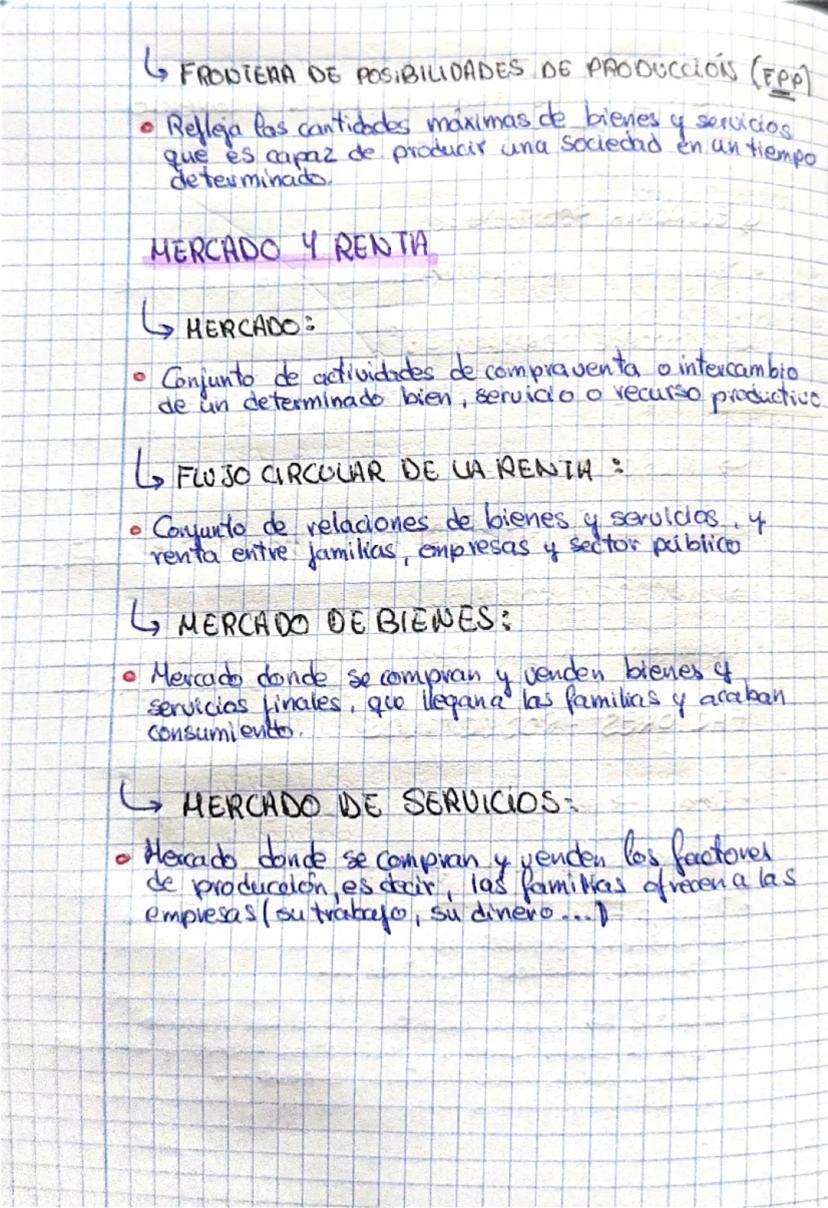 ↳ FRONTERA DE POSIBILIDADES DE PRODUCCIÓN (FPP)
• Refleja las cantidades máximas de bienes y servicios
que es capaz de producir una sociedad en un tiempo
determinado.
MERCADO Y RENTA
↳ MERCADO:
• Conjunto de actividades de compraventa o intercambio
de un determinado bien, servicio o recurso productivo.
↳ FLUJO CIRCULAR DE LA RENTA:
• Conjunto de relaciones de bienes y servicios, y
renta entre familias, empresas y sector público
↳ MERCADO DE BIENES:
• Mercado donde se compran y venden bienes y
servicios finales, que llegan a las familias y acaban
consumiendo.
↳ MERCADO DE SERVICIOS:
• Mercado donde se compran y venden los factores
de producción, es decir, las familias ofrecen a las
empresas (su trabajo, su dinero...)